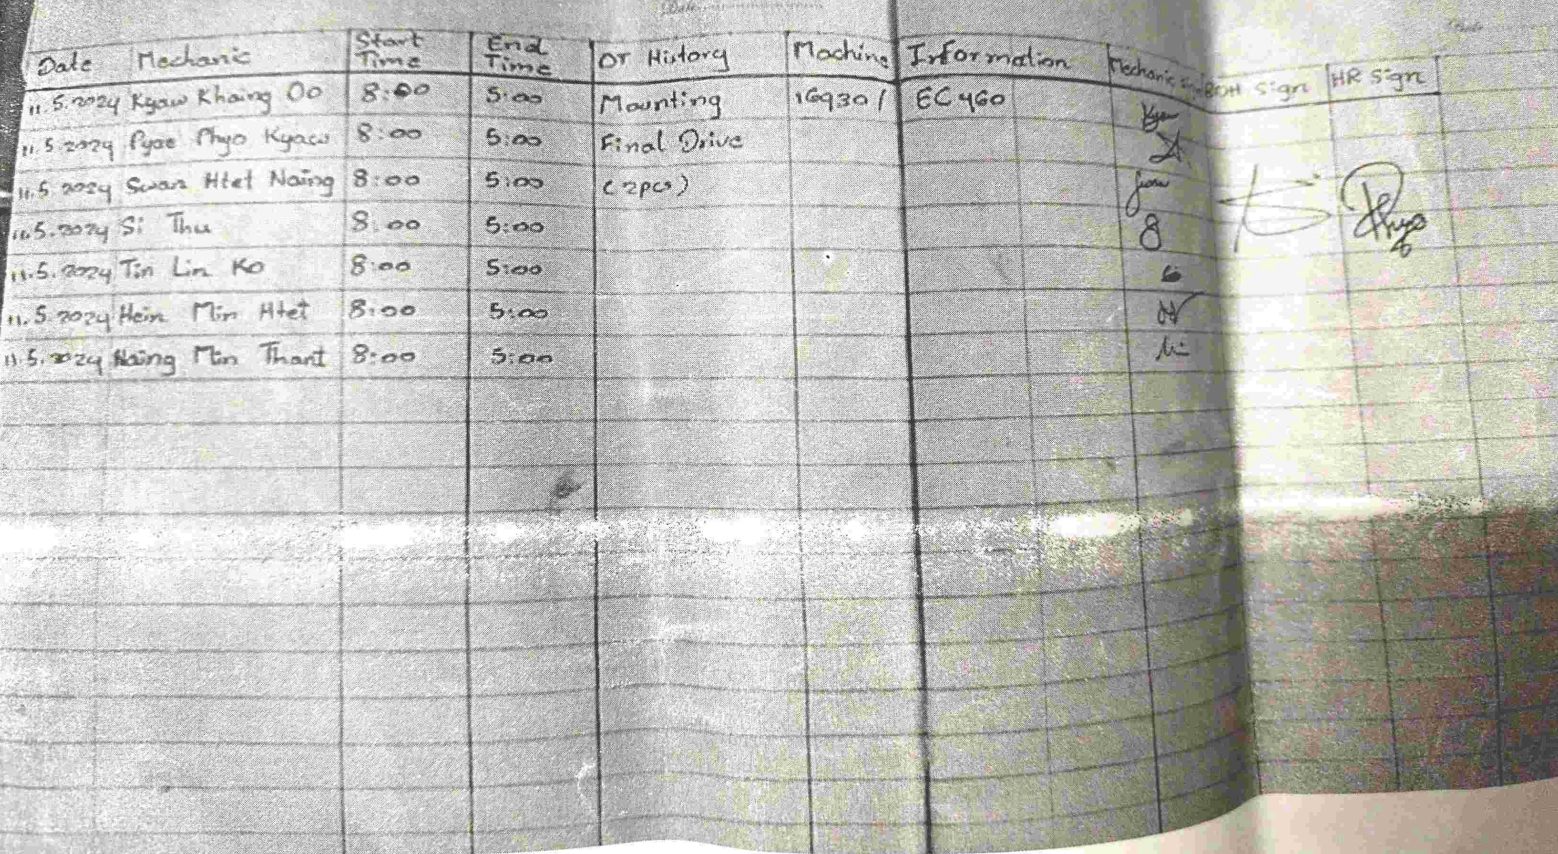 Date Mechanic Start Time End Time OT History Machine Information Mechanic Sign BOH Sign HR Sign
11.5.2024 Kyaw Khaing Oo 8:00 5:00 Mounting 16930/ EC460
11.5.2024 Pyae Phyo Kyaw 8:00 5:00 Final Drive
11.5.2024 Swan Htet Naing 8:00 5:00 (2pcs)
11.5.2024 Si Thu 8:00 5:00
11.5.2024 Tin Lin Ko 8:00 5:00
11.5.2024 Hein Min Htet 8:00 5:00
11.5.2024 Naing Min Thant 8:00 5:00